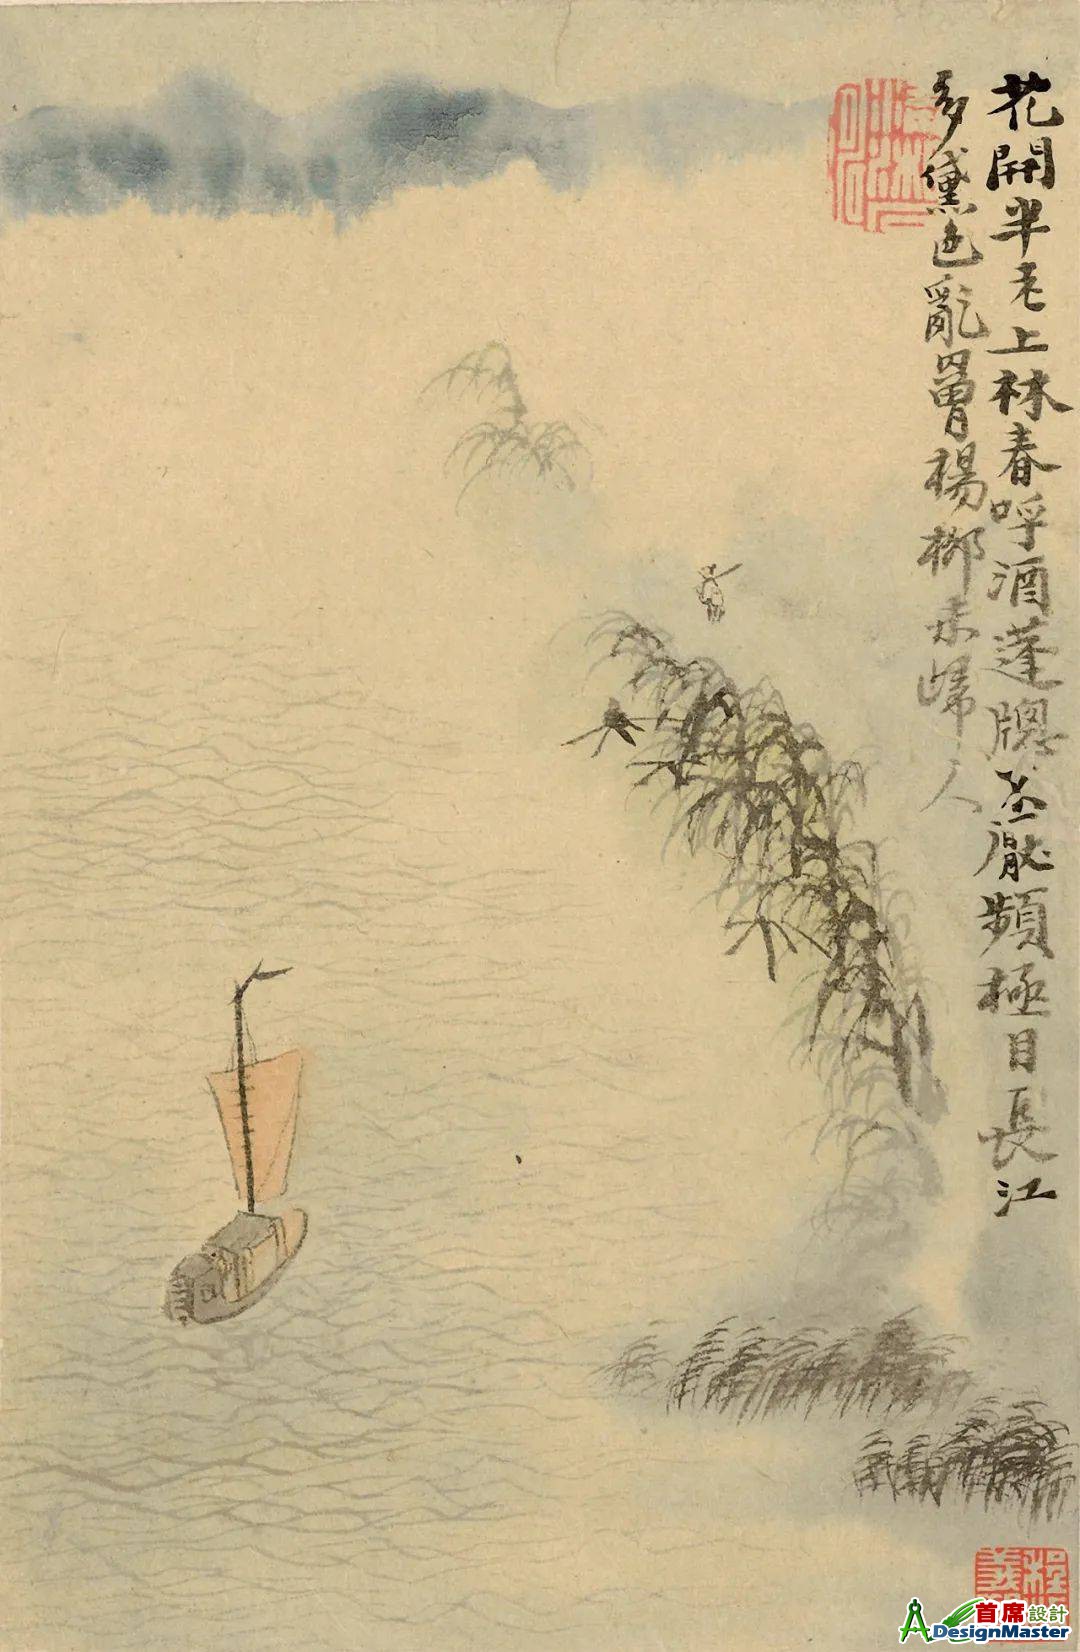 花開半老上林春呼酒蓬牕不厭頻極目長江
多黛色亂曾楊栁未歸人
程
義
首席設計
ADesignMaster